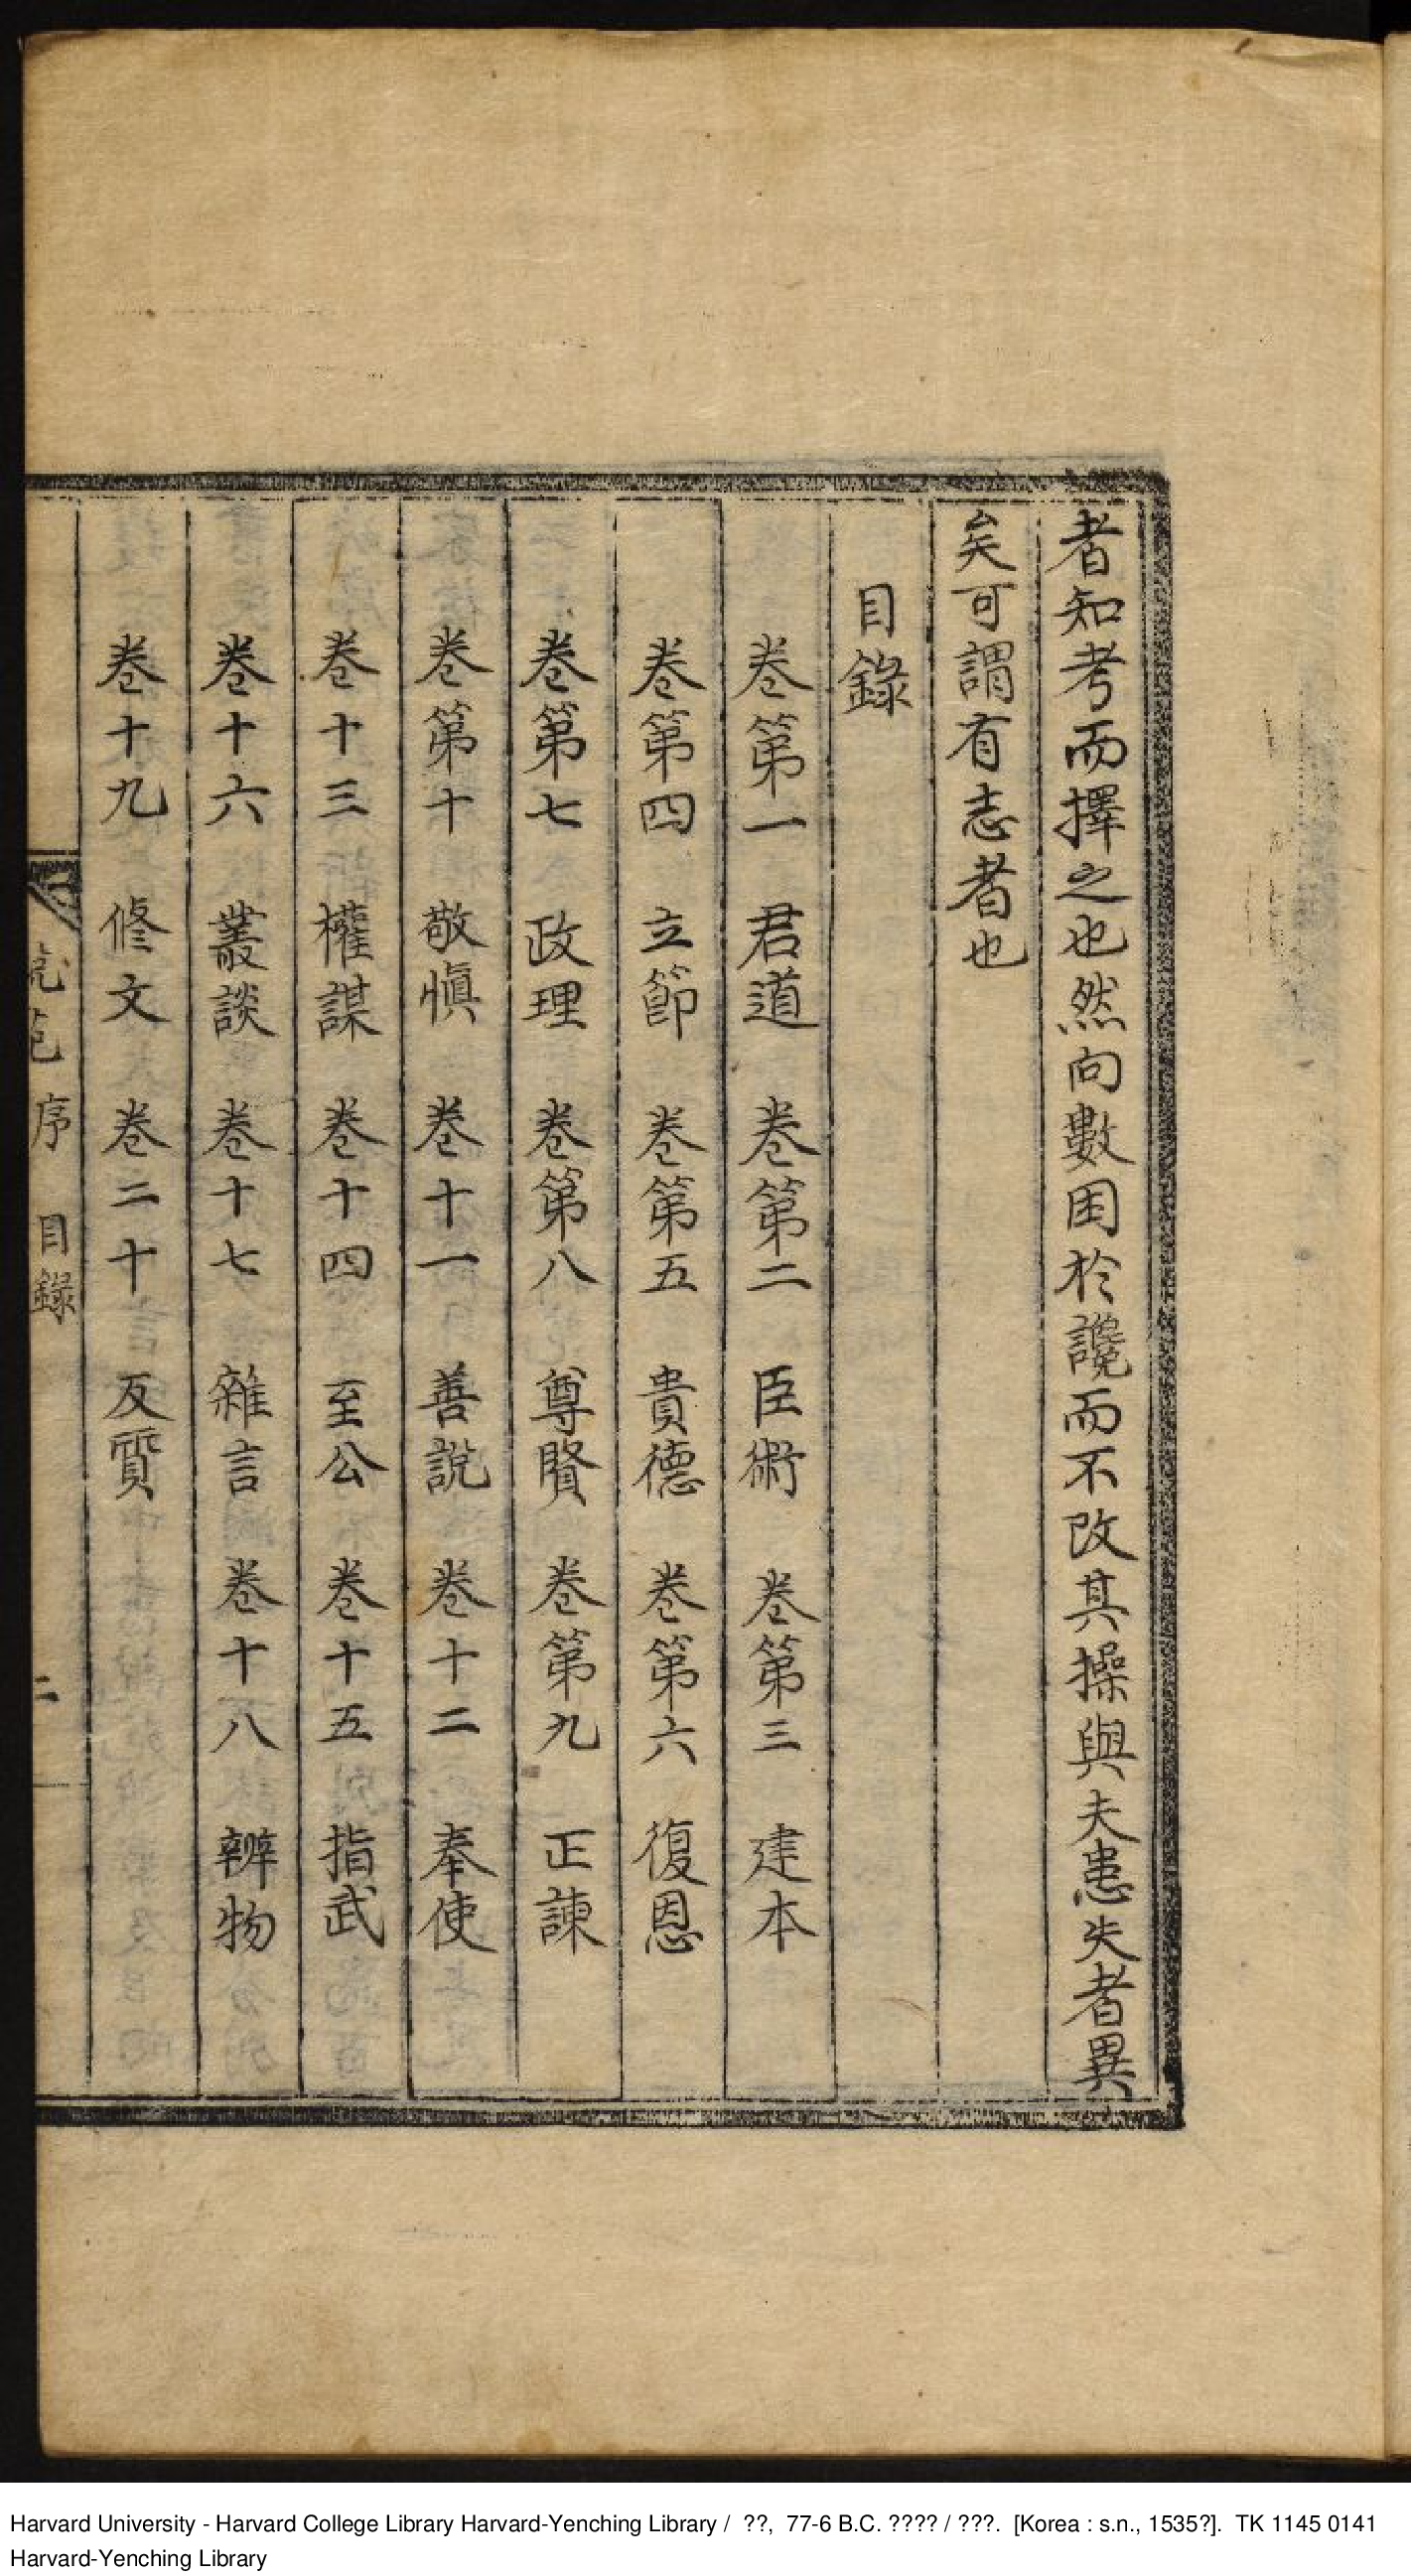 者知考而擇之也然向數困於讒而不改其操與夫患失者異
矣可謂有志者也
目錄
卷第一 君道 卷第二 臣術 卷第三 建本
卷第四 立節 卷第五 貴德 卷第六 復恩
卷第七 政理 卷第八 尊賢 卷第九 正諫
卷第十 敬愼 卷十一 善說 卷十二 奉使
卷十三 權謀 卷十四 至公 卷十五 指武
卷十六 叢談 卷十七 雜言 卷十八 辨物
卷十九 修文 卷二十 反質
說苑 序 目録 二
Harvard University - Harvard College Library Harvard-Yenching Library / ??, 77-6 B.C. ???? / ???. [Korea : s.n., 1535?]. TK 1145 0141
Harvard-Yenching Library